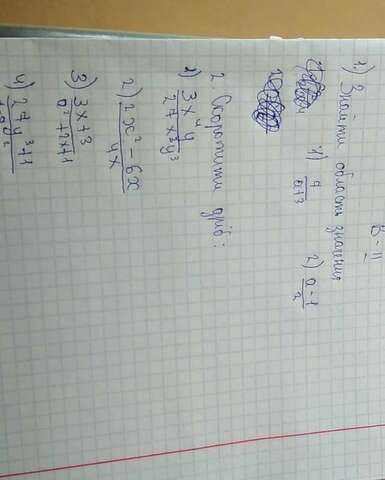 В - II
1) Знайти область значення
1) 9/(a+3) 2) (a-1)/a
2. Скоротити дріб:
1) 3x⁴y/(27x³y³)
2) (2x² - 6x)/(4x)
3) (3x+3)/(a²+2x+1)
4)